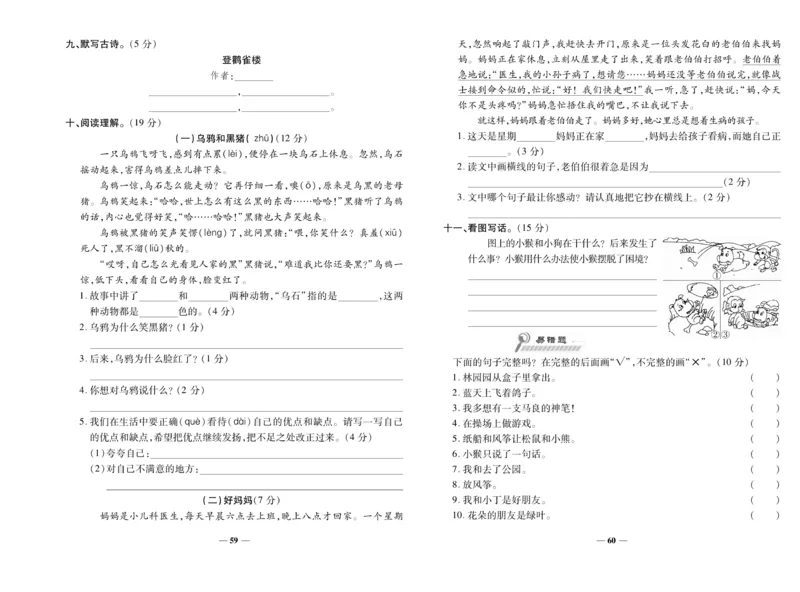 九、默写古诗。(5 分)
登鹳雀楼
作者:________
____________________,____________________。
____________________,____________________。
十、阅读理解。(19 分)
(一)乌鸦和黑猪( zhū)(12 分)
一只乌鸦飞呀飞,感到有点累(lèi),便停在一块乌石上休息。忽然,乌石
摇动起来,害得乌鸦差点儿摔下来。
乌鸦一惊,乌石怎么能走动?它再仔细一看,噢(ō),原来是乌黑的老母
猪。乌鸦笑起来:“哈哈,世上怎么有这么黑的东西……哈哈!”黑猪听了乌鸦
的话,内心也觉得好笑,“哈……哈哈!”黑猪也大声笑起来。
乌鸦被黑猪的笑声笑愣(lèng)了,就问黑猪:“喂,你笑什么?真羞(xiū)
死人了,黑不溜(liū)秋的。
“哎呀,自己怎么光看见人家的黑”黑猪说,“难道我比你还要黑?”乌鸦一
惊,低下头,看看自己的身体,脸变红了。
1. 故事中讲了________和________两种动物,“乌石”指的是________,这两
种动物都是________色的。(4 分)
2. 乌鸦为什么笑黑猪?(1 分)
3. 后来,乌鸦为什么脸红了?(1 分)
4. 你想对乌鸦说什么?(2 分)
5. 我们在生活中要正确(què)看待(dài)自己的优点和缺点。请写一写自己
的优点和缺点,希望把优点继续发扬,把不足之处改正过来。(4 分)
(1)夸夸自己:
(2)对自己不满意的地方:
(二)好妈妈(7 分)
妈妈是小儿科医生,每天早晨六点去上班,晚上八点才回家。一个星期
— 59 —
天,忽然响起了敲门声,我赶快去开门,原来是一位头发花白的老伯伯来找妈
妈。妈妈正在家休息,立刻从屋里走了出来,笑着跟老伯伯打招呼。老伯伯着
急地说:“医生,我的小孙子病了,想请您……妈妈还没等老伯伯说完,就像战
士接到命令似的,忙说:“好!我们快走吧!”我一听,急了,赶快说:“妈,今天
你不是头疼吗?”妈妈急忙捂住我的嘴巴,不让我说下去。
就这样,妈妈跟着老伯伯走了。妈妈多好,她心里总是想着生病的孩子。
1. 这天是星期________妈妈正在家________,妈妈去给孩子看病,而她自己正
________。(3 分)
2. 读文中画横线的句子,老伯伯很着急是因为
(2 分)
3. 文中哪个句子最让你感动?请认真地把它抄在横线上。(2 分)
十一、看图写话。(15 分)
图上的小猴和小狗在干什么?后来发生了
什么事?小猴用什么办法使小猴摆脱了困境?
①
②③
易错题
下面的句子完整吗?在完整的后面画“✓”,不完整的画“✕”。(10 分)
1. 林园园从盒子里拿出。 ( )
2. 蓝天上飞着鸽子。 ( )
3. 我多想有一支马良的神笔! ( )
4. 在操场上做游戏。 ( )
5. 纸船和风筝让松鼠和小熊。 ( )
6. 小猴只说了一句话。 ( )
7. 我和去了公园。 ( )
8. 放风筝。 ( )
9. 我和小丁是好朋友。 ( )
10. 花朵的朋友是绿叶。 ( )
— 60 —